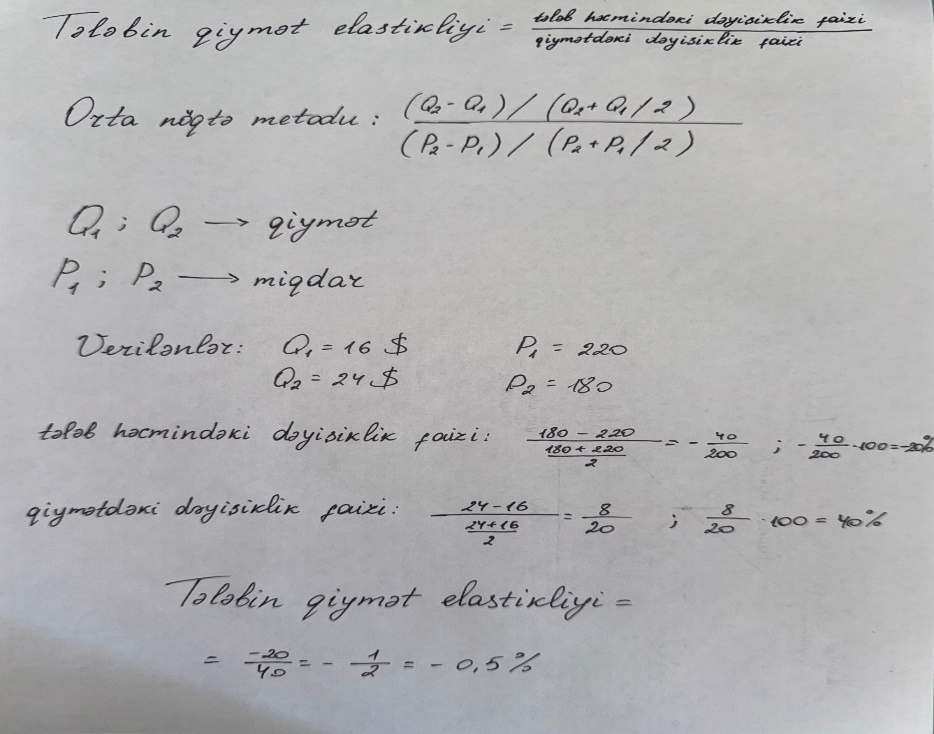 Tələbin qiymət elastikliyi = tələb həcmindəki dəyisiklik faizi / qiymətdəki dəyisiklik faizi
Orta nöqtə metodu: (Q₂ - Q₁) / (Q₂ + Q₁ / 2) / (P₂ - P₁) / (P₂ + P₁ / 2)
Q₁ ; Q₂ → qiymət
P₁ ; P₂ → miqdar
Verilənlər: Q₁ = 16 $ P₁ = 220
Q₂ = 24 $ P₂ = 180
tələb həcmindəki dəyisiklik faizi: 180 - 220 / 180 + 220 / 2 = - 40 / 200 ; - 40 / 200 · 100 = -20%
qiymətdəki dəyisiklik faizi: 24 - 16 / 24 + 16 / 2 = 8 / 20 ; 8 / 20 · 100 = 40%
Tələbin qiymət elastikliyi =
= -20 / 40 = - 1 / 2 = - 0,5 %